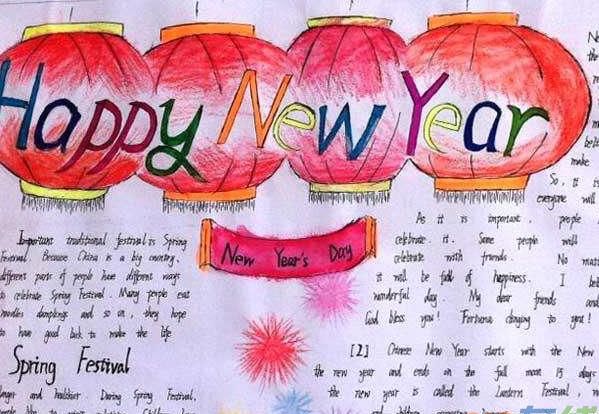 Happy New Year
New Year's Day
Important traditional festival is Spring
Festival. Because China is a big country,
different parts of people have different ways
to celebrate Spring Festival. Many people eat
noodles dumplings and so on, they hope
to have good back to make the life
Spring Festival
and healthier During Spring Festival,
make
So, it is
everyone will
As it is important, people
celebrate it. Some people will
celebrate with friends. No mat
it will be full of happiness. I bel
wonderful day. My dear friends and
God bless you! Fortuna clinging to you!
[2] Chinese New Year starts with the New
the new year and ends on the full moon 15 days
the new year is called the Lantern Festival,